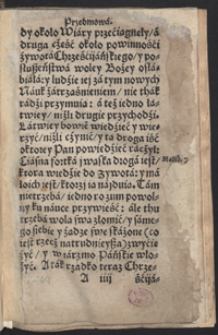 Przedmowá.
dy około Wiáry przećiągnęły/ á
druga część około powinnośći
żywotá Chrześćijáńskiego/ y po=
słuszeństwá woley Bożey osłá=
biáłá: y ludzie iej zá tym nowych
Náuk zátrząśnieniem/ nie ták
rádzi przyimuią: á też iedno łá=
twiey/ niżli drugie przychodzi.
Łátwiey bowiem wiedzieć y wie=
rzyć/ niżli czynić/ y tá drogá iść
o ktorey Pan powiedzieć raczył:
Ciásna fortká y wąska drogá iest/
ktora wiedzie do żywotá: y má=
ło ich jest/ ktorzy ią náyduią. Tám
nie trzebá/ iedno rozum powol=
ny ku náuce przywieść: ále thu
trzebá wolą swą złomić/ y sáme=
go siebie y żądze swe skáżone (co
iest rzecz nátrudnieysza) zwycię=
żyć/ y w iárzmo Páńskie wło=
żyć. A ták rzadko teraz Chrze=
A iiij
śćijá=
Matth. 7